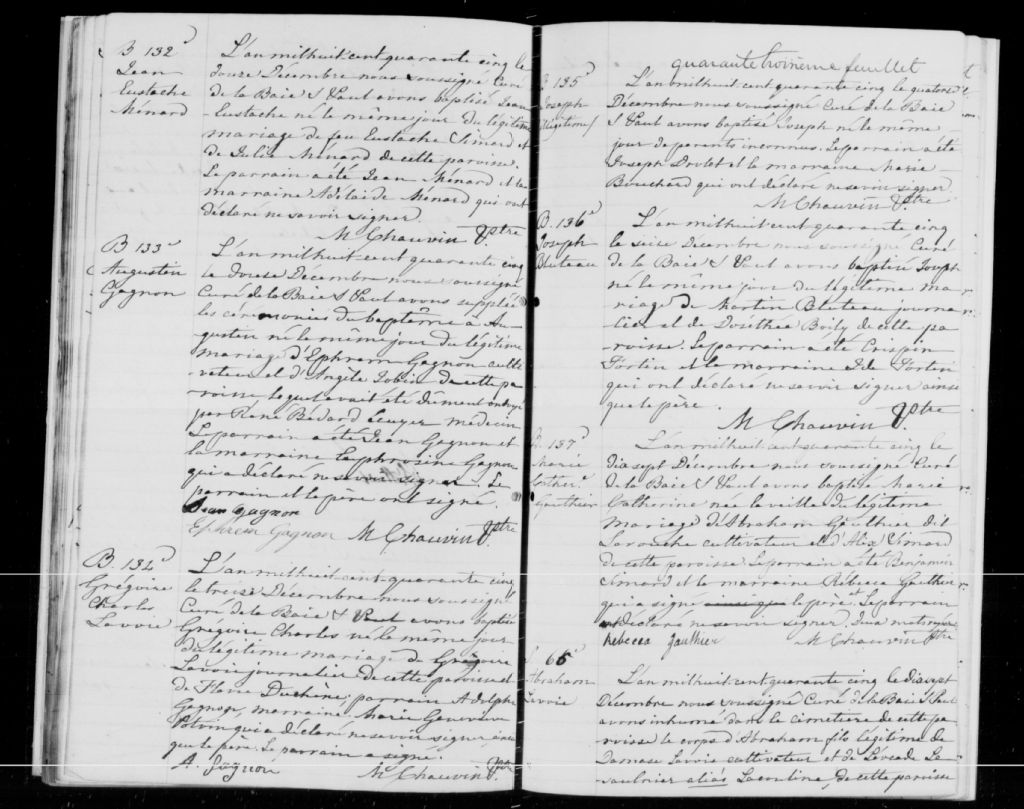 B 132e
Jean
Eustache
Ménard
L'an mil huit cent quarante cinq le
douze Décembre nous soussigné Curé
de la Baie St Paul avons baptisé Jean
Eustache né le même jour du légitime
mariage de feu Eustache Simard et
de Julie Ménard de cette paroisse.
Le parrain a été Jean Ménard et la
marraine Adélaïde Ménard qui ont
déclaré ne savoir signer.
M Chauvin Ptre
B 133e
Augustin
Gagnon
L'an mil huit cent quarante cinq
le douze Décembre nous soussigné
Curé de la Baie St Paul avons suppléé
les cérémonies du baptême à Au-
gustin né le même jour du légitime
mariage d'Ephrem Gagnon culti-
vateur et d'Angèle de cette pa-
roisse, lequel avait été dûment ondoyé
par René Bédard Ecuyer médecin
Le parrain a été Jean Gagnon et
la marraine Euphrosine Gagnon
qui a déclaré ne savoir signer. Le
parrain et le père ont signé.
Jean Gagnon
Ephrem Gagnon M Chauvin Ptre
B. 134e
Grégoire
Charles
Lavoie
L'an mil huit cent quarante cinq
le treize Décembre nous soussigné
Curé de la Baie St Paul avons baptisé
Grégoire Charles né le même jour
du légitime mariage de Grégoire
Lavoie journalier de cette paroisse et
de Flavie Duchêne; parrain Adolphe
Gagnon, marraine Marie Geneviève
Potvin qui a déclaré ne savoir signer ainsi
que le père. Le parrain a signé.
A. Gagnon
M Chauvin Ptre
quarante troisième feuillet
135e
Joseph
Illégitime
L'an mil huit cent quarante cinq le quatorze
Décembre nous soussigné Curé de la Baie
St Paul avons baptisé Joseph né le même
jour de parents inconnus. Le parrain a été
Joseph Drolet et la marraine Marie
Bouchard qui ont déclaré ne savoir signer
M Chauvin Ptre
B. 136e
Joseph
Bluteau
L'an mil huit cent quarante cinq
le seize Décembre nous soussigné Curé
de la Baie St Paul avons baptisé Joseph
né le même jour du légitime ma-
riage de Martin Bluteau journa-
lier et de Dorothée Boily de cette pa-
roisse. Le parrain a été Crispin
Fortin et la marraine Fortin
qui ont déclaré ne savoir signer ainsi
que le père.
M Chauvin Ptre
B. 137e
Marie
Gauthier
L'an mil huit cent quarante cinq le
dix sept Décembre nous soussigné Curé
de la Baie St Paul avons baptisé Marie
Catherine née la veille du légitime
mariage d'Abraham Gauthier dit
Larouche cultivateur et d'Alix Simard
de cette paroisse. Le parrain a été Benjamin
Simard et la marraine Rébecca Gauthier
qui a signé ainsi que le père et Le parrain
déclaré ne savoir signer.
Rebecca Gauthier M Chauvin Ptre
S. 66e
Abraham
Lavoie
L'an mil huit cent quarante cinq le dix sept
Décembre nous soussigné Curé de la Baie St Paul
avons inhumé dans le cimetière de cette pa-
roisse le corps d'Abraham fils légitime de
Damase Lavoie cultivateur et de
alias de cette paroisse